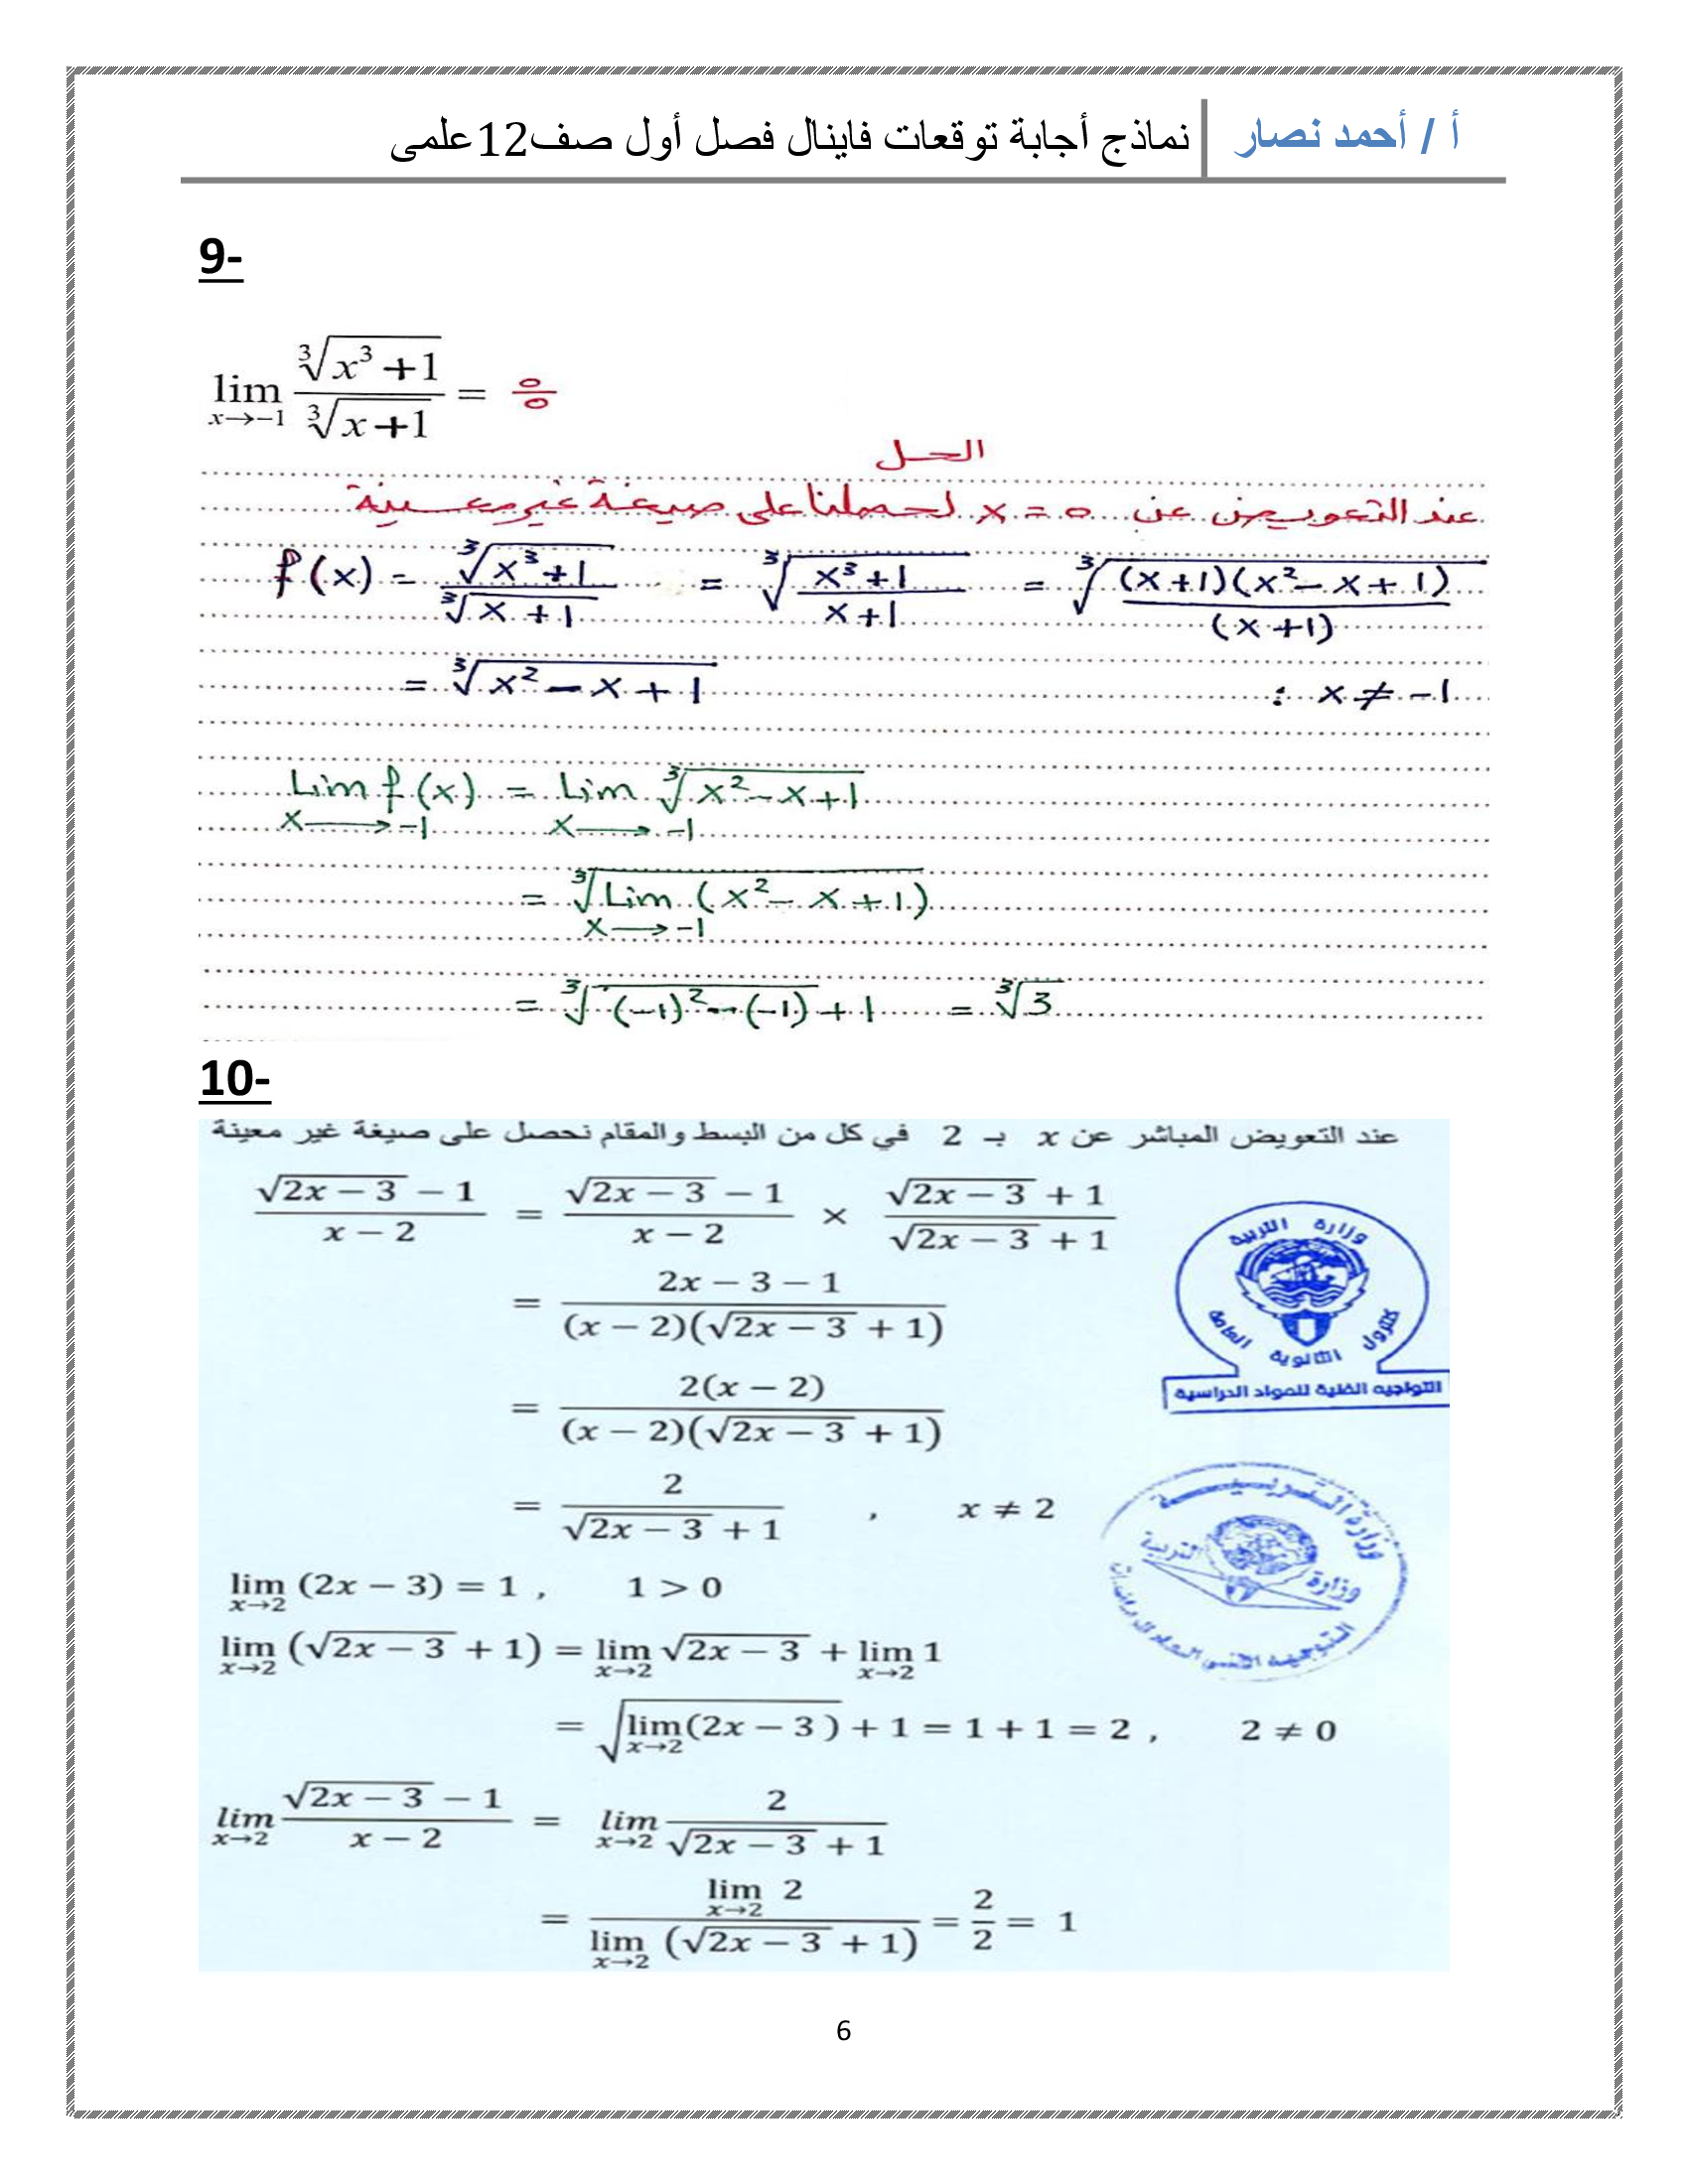 أ / أحمد نصار
نماذج أجابة توقعات فاينال فصل أول صف12علمى
9-
lim x→-1 ∛(x³ + 1) / ∛(x + 1) = 0/0
الحل
عند التعويض عن x = 0 لحصلنا على صيغة غير معينة
f(x) = ∛(x³ + 1) / ∛(x + 1) = ∛((x³ + 1) / (x + 1)) = ∛((x + 1)(x² − x + 1) / (x + 1))
= ∛(x² − x + 1) : x ≠ −1
Lim x→−1 f(x) = Lim x→−1 ∛(x² − x + 1)
= ∛(Lim x→−1 (x² − x + 1))
= ∛((−1)² − (−1) + 1) = ∛3
10-
عند التعويض المباشر عن x بـ 2 في كل من البسط والمقام نحصل على صيغة غير معينة
(√(2x − 3) − 1) / (x − 2) = (√(2x − 3) − 1) / (x − 2) × (√(2x − 3) + 1) / (√(2x − 3) + 1)
= (2x − 3 − 1) / ((x − 2)(√(2x − 3) + 1))
= 2(x − 2) / ((x − 2)(√(2x − 3) + 1))
= 2 / (√(2x − 3) + 1) , x ≠ 2
lim x→2 (2x − 3) = 1 , 1 > 0
lim x→2 (√(2x − 3) + 1) = lim x→2 √(2x − 3) + lim x→2 1
= √(lim x→2 (2x − 3)) + 1 = 1 + 1 = 2 , 2 ≠ 0
lim x→2 (√(2x − 3) − 1) / (x − 2) = lim x→2 2 / (√(2x − 3) + 1)
= lim x→2 2 / lim x→2 (√(2x − 3) + 1) = 2/2 = 1
وزارة التربية
كنترول الثانوية العامة
التواجيه الفنية للمواد الدراسية
وزارة التربية
6